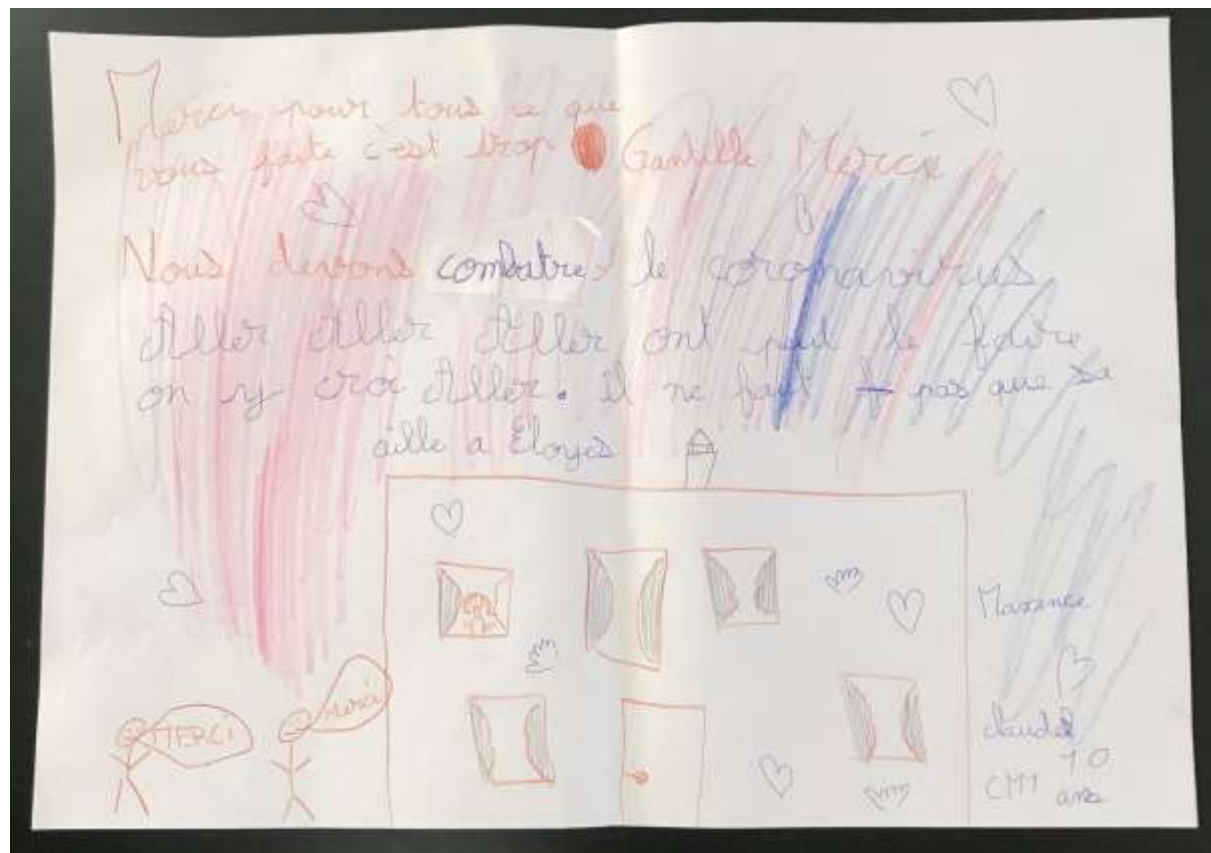 Merci pour tous ce que
vous faite c'est trop Gantille Merci
Nous devons combatre le coronavirus
Aller Aller Aller ont peut le faire
on y croi Aller. il ne faut pas que sa
aille a Eloyes
Maxence
claudel
10
CM1 ans
MERCI
Merci